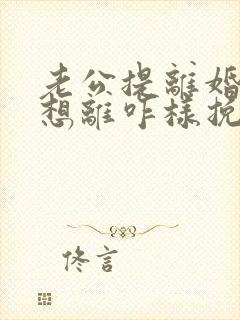 老公提離婚
想離咋樣挽
佟言